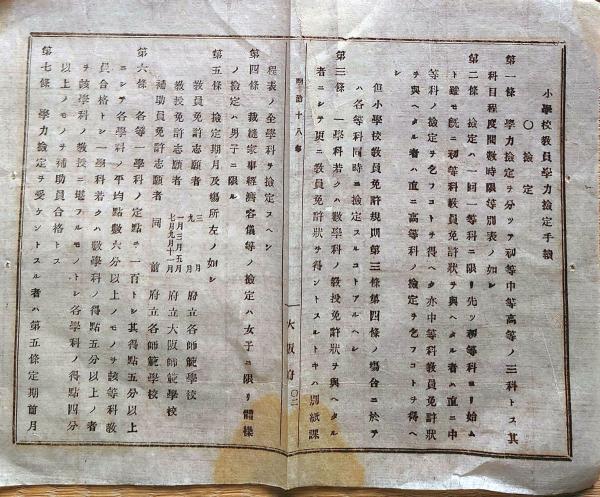 小學校教員學力檢定手續
〇檢定
第一條 學力檢定ヲ分ツテ初等中等高等ノ三科トス其
科目程度問數時限等別表ノ如シ
第二條 檢定ハ一回一等科ニ限リ先ツ初等科ヨリ始ム
ト雖モ既ニ初等科敎員免許狀ヲ與ヘタル者ハ直ニ中
等科ノ檢定ヲ乞フコトヲ得ヘク亦中等科敎員免許狀
ヲ與ヘタル者ハ直ニ高等科ノ檢定ヲ乞フコトヲ得ヘ
シ
但小學校敎員免許規則第三條第四條ノ塲合ニ於テ
ハ各等科同時ニ檢定スルコトアルヘシ
第三條 一學科若クハ數學科ノ敎授免許狀ヲ與ヘタル
者ニシテ更ニ敎員免許狀ヲ得ントスルトキハ別紙課
明治十八年
大阪府
程表ノ全學科ヲ檢定スヘシ
第四條 裁縫家事經濟容儀等ノ檢定ハ女子ニ限リ體操
ノ檢定ハ男子ニ限ル
第五條 檢定期月及塲所左ノ如シ
敎員免許志願者 三月 九月 府立各師範學校
敎授免許志願者 一月三月五月 七月九月十一月 府立大阪師範學校
補助員免許志願者 同前 府立各師範學校
第六條 各等一學科ノ定點ヲ一百トシ其得點五分以上
ニシテ各學科ノ平均點數六分以上ノモノヲ該等科敎
員合格トシ一學科若クハ數學科ノ得點五分以上ノ者
ヲ該學科ノ敎授ニ適フルモノトシ各學科ノ得點四分
以上ノモノヲ補助員合格トス
第七條 學力檢定ヲ受ケントスル者ハ第五條定期前月